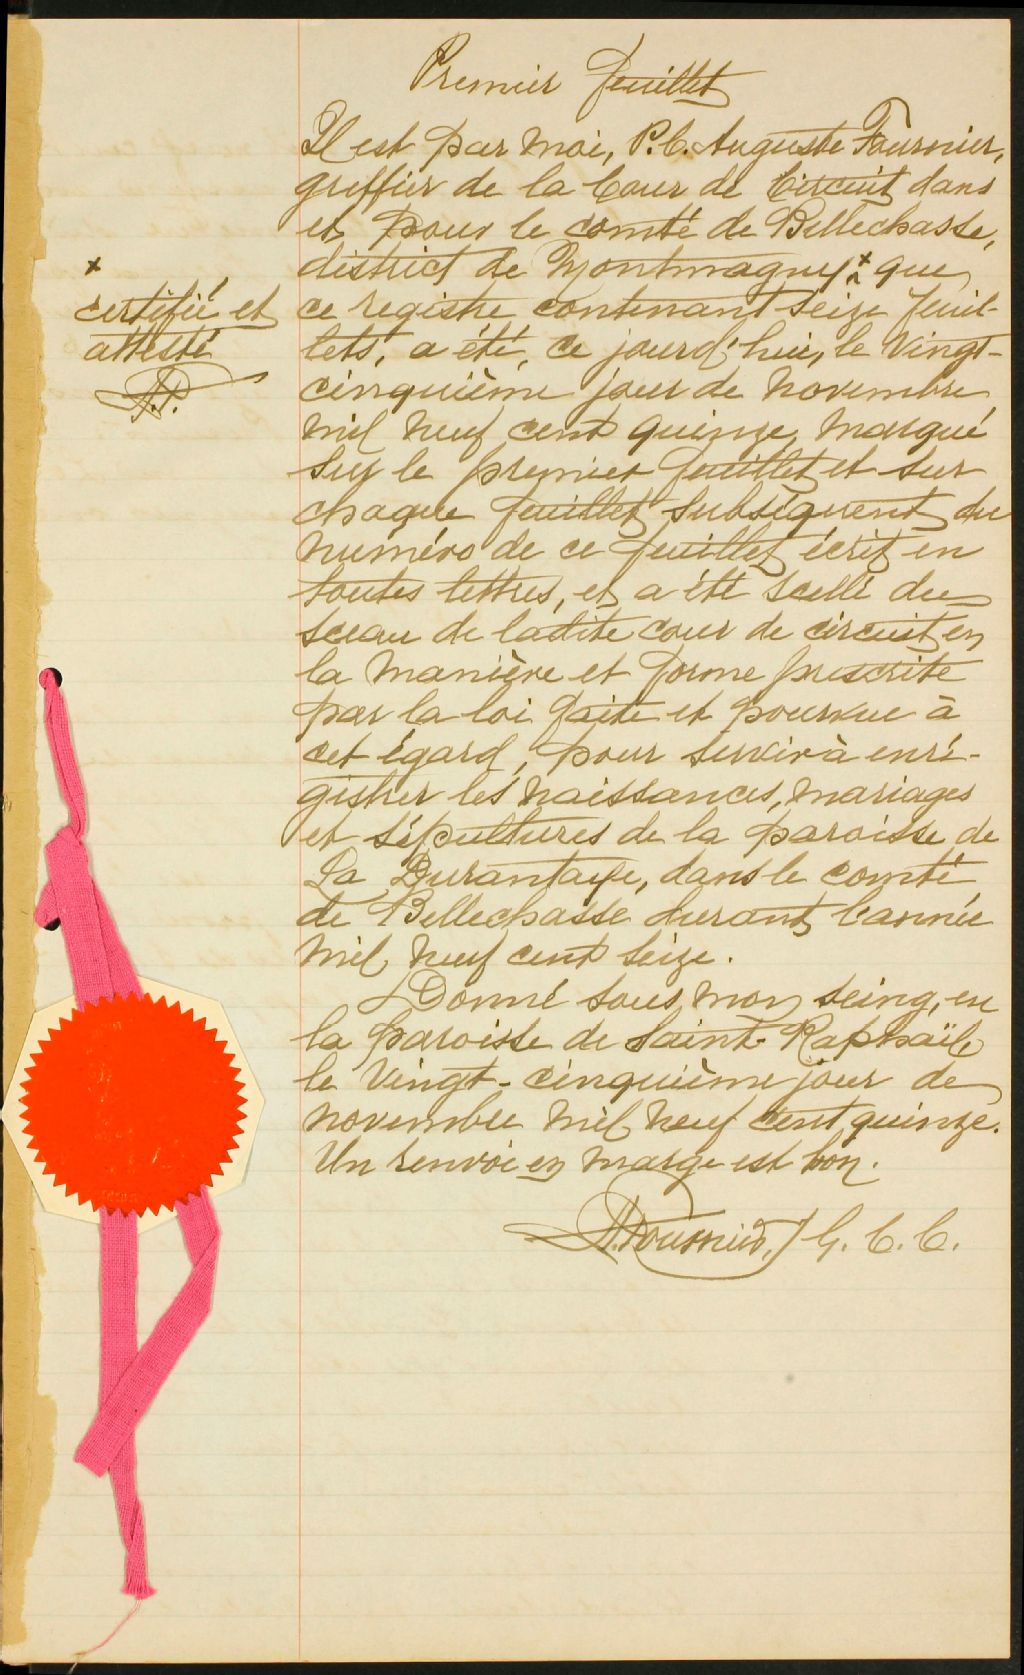 Premier feuillet
Il est par moi, P.C. Auguste Fournier,
greffier de la Cour de Circuit dans
et pour le comté de Bellechasse,
district de Montmagny x que
x
certifié et
attesté
ce registre contenant seize feuil-
lets, a été, ce jourd'hui, le vingt-
cinquième jour de novembre
mil neuf cent quinze, marqué
sur le premier feuillet et sur
chaque feuillet subséquent du
numéro de ce feuillet écrit en
toutes lettres, et a été scellé du
sceau de ladite cour de circuit en
la manière et forme prescrite
par la loi faite et pourvue à
cet égard, pour servir à enré-
gistrer les naissances, mariages
et sépultures de la paroisse de
La Durantaye, dans le comté
de Bellechasse durant l'année
mil neuf cent seize.
Donné sous mon seing, en
la paroisse de Saint-Raphaël
le vingt-cinquième jour de
novembre mil neuf cent quinze.
Un renvoi en marge est bon.
A. Fournier, G. C. C.